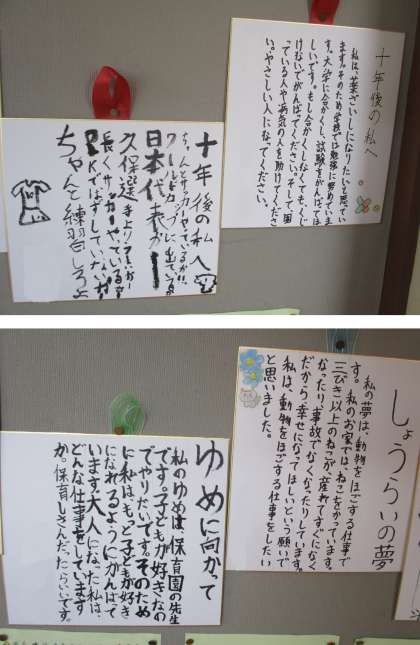 十年後の私へ
私は、薬ざいしになりたいと思てい
ます。そのため学校では勉強に努めていま
す。大学に合かくし、試験をがんばてほ
しいです。もし合かくしなくても、くじ
けないでがんばってください。そして、困
っている人や病気の人を助けてくださ
い。やさしい人になってください。
十年後の私へ
ちゃんとサッカーやってるか!!
ワールドカップに出ているか
日本代表か
久保選手より
長くサッカーやっているか
PKはずしていたら
ちゃんと練習しろよ
しょうらいの夢
私の夢は、動物をほごする仕事で
す。私のお家では、ねこをかっています。
三びき以上のねこが、産れてすぐになく
なったり、事故でなくなったりしています。
だから、幸せになってほしいという願いで
私は、動物をほごする仕事をしたい
と思いました。
ゆめに向かって
私のゆめは、保育園の先生
です。子どもが好きなの
でやりたいです。そのため
に私は、もっと子どもが好き
になれるようにがんばて
います。大人になった私は、
どんな仕事をしています
か。保育しさんだったらいいです。